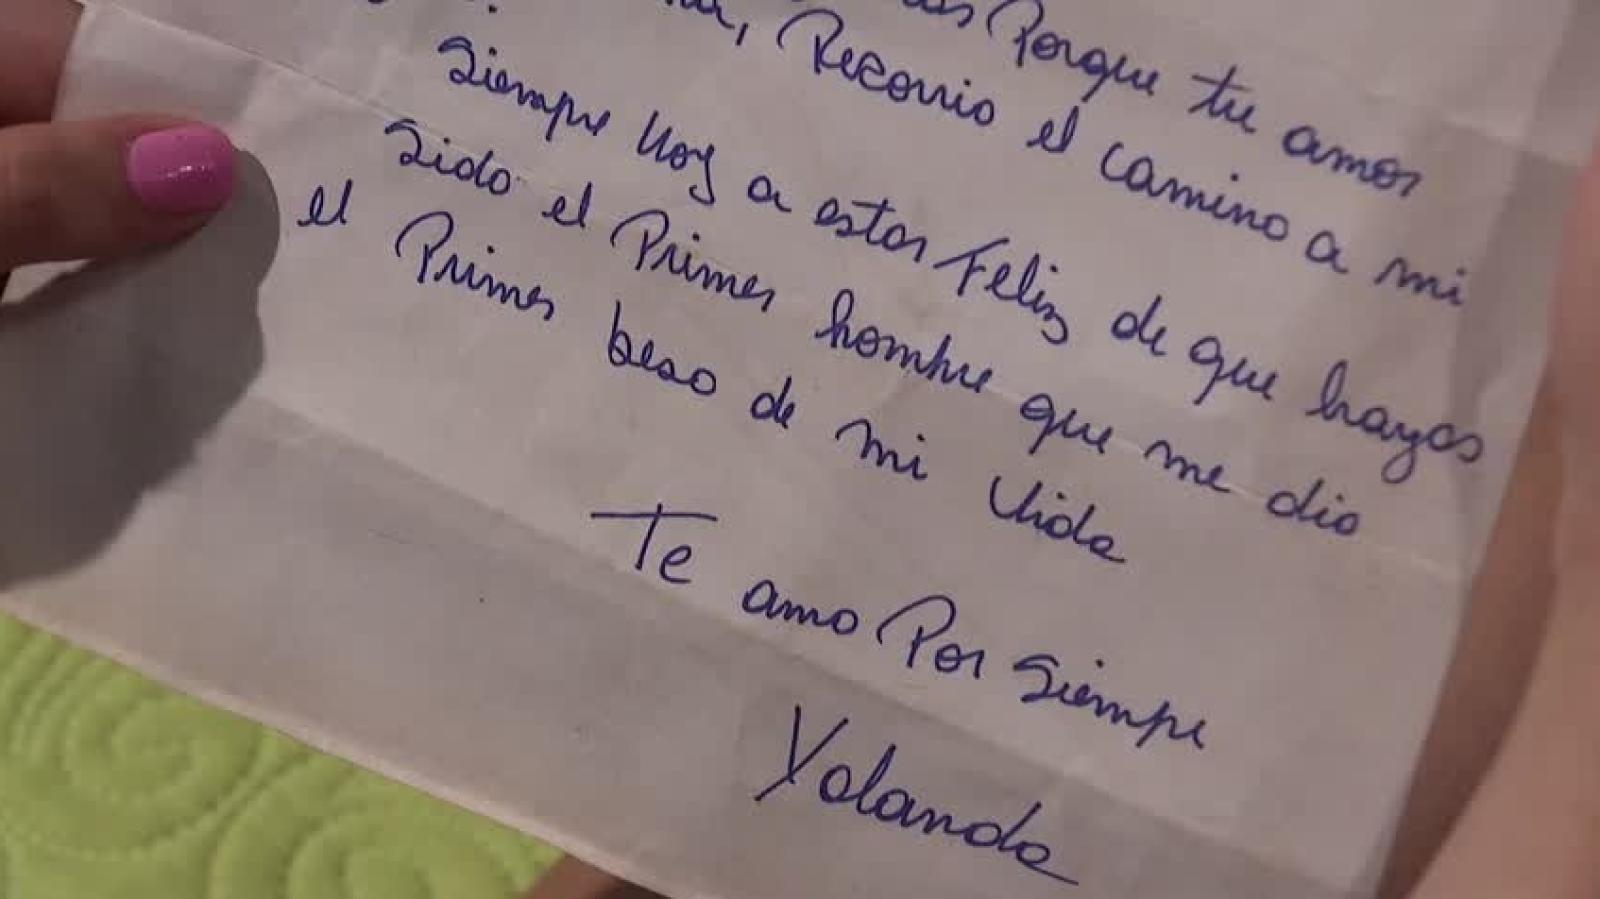 Porque tu amor
Recorrio el camino a mi
Siempre Hoy a estar Feliz de que hayas
Sido el Primer hombre que me dio
el Primer beso de mi vida
Te amo Por Siempre
Yolanda